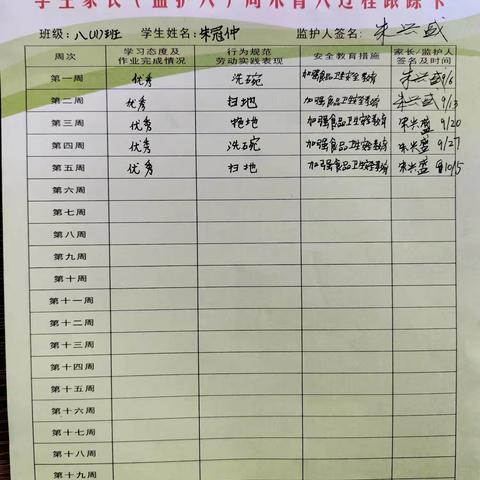 学生家长（监护人）周末育人过程跟踪卡
班级：八(11)班 学生姓名：朱冠仲 监护人签名：朱兴盛
周次 学习态度及作业完成情况 行为规范劳动实践表现 安全教育措施 家长/监护人签名及时间
第一周 优秀 洗碗 加强食品卫生安全教育 朱兴盛 9/6
第二周 优秀 扫地 加强食品卫生安全教育 朱兴盛 9/13
第三周 优秀 拖地 加强食品卫生安全教育 朱兴盛 9/20
第四周 优秀 洗碗 加强食品卫生安全教育 朱兴盛 9/27
第五周 优秀 扫地 加强食品卫生安全教育 朱兴盛 10/5
第六周
第七周
第八周
第九周
第十周
第十一周
第十二周
第十三周
第十四周
第十五周
第十六周
第十七周
第十八周
第十九周